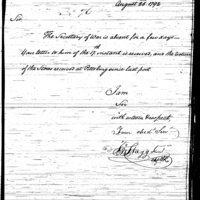 August 25. 1792
Sir
The Secretary of War is absent for a few days—
Your letter to him of the 17 instant is received, and the
of the Stores received at Pittsburg since last post
I am
Sir
with esteem & respect
Your obed. Ser